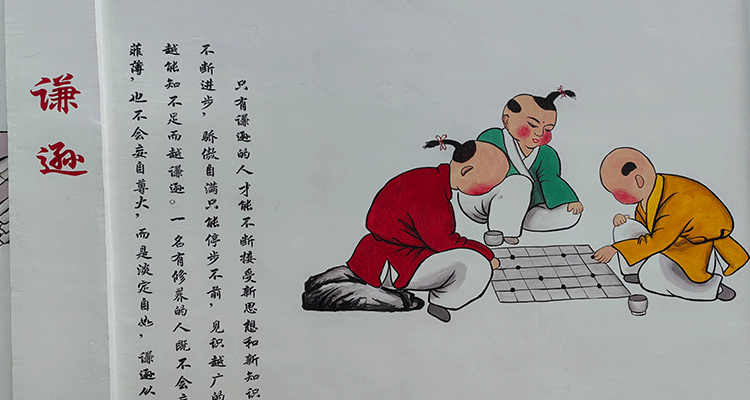 谦逊
只有谦逊的人才能不断接受新思想和新知识
不断进步，骄傲自满只能停步不前，见识越广的
越能知不足而越谦逊。一名有修养的人既不会
菲薄，也不会妄自尊大，而是淡定自如，谦逊从